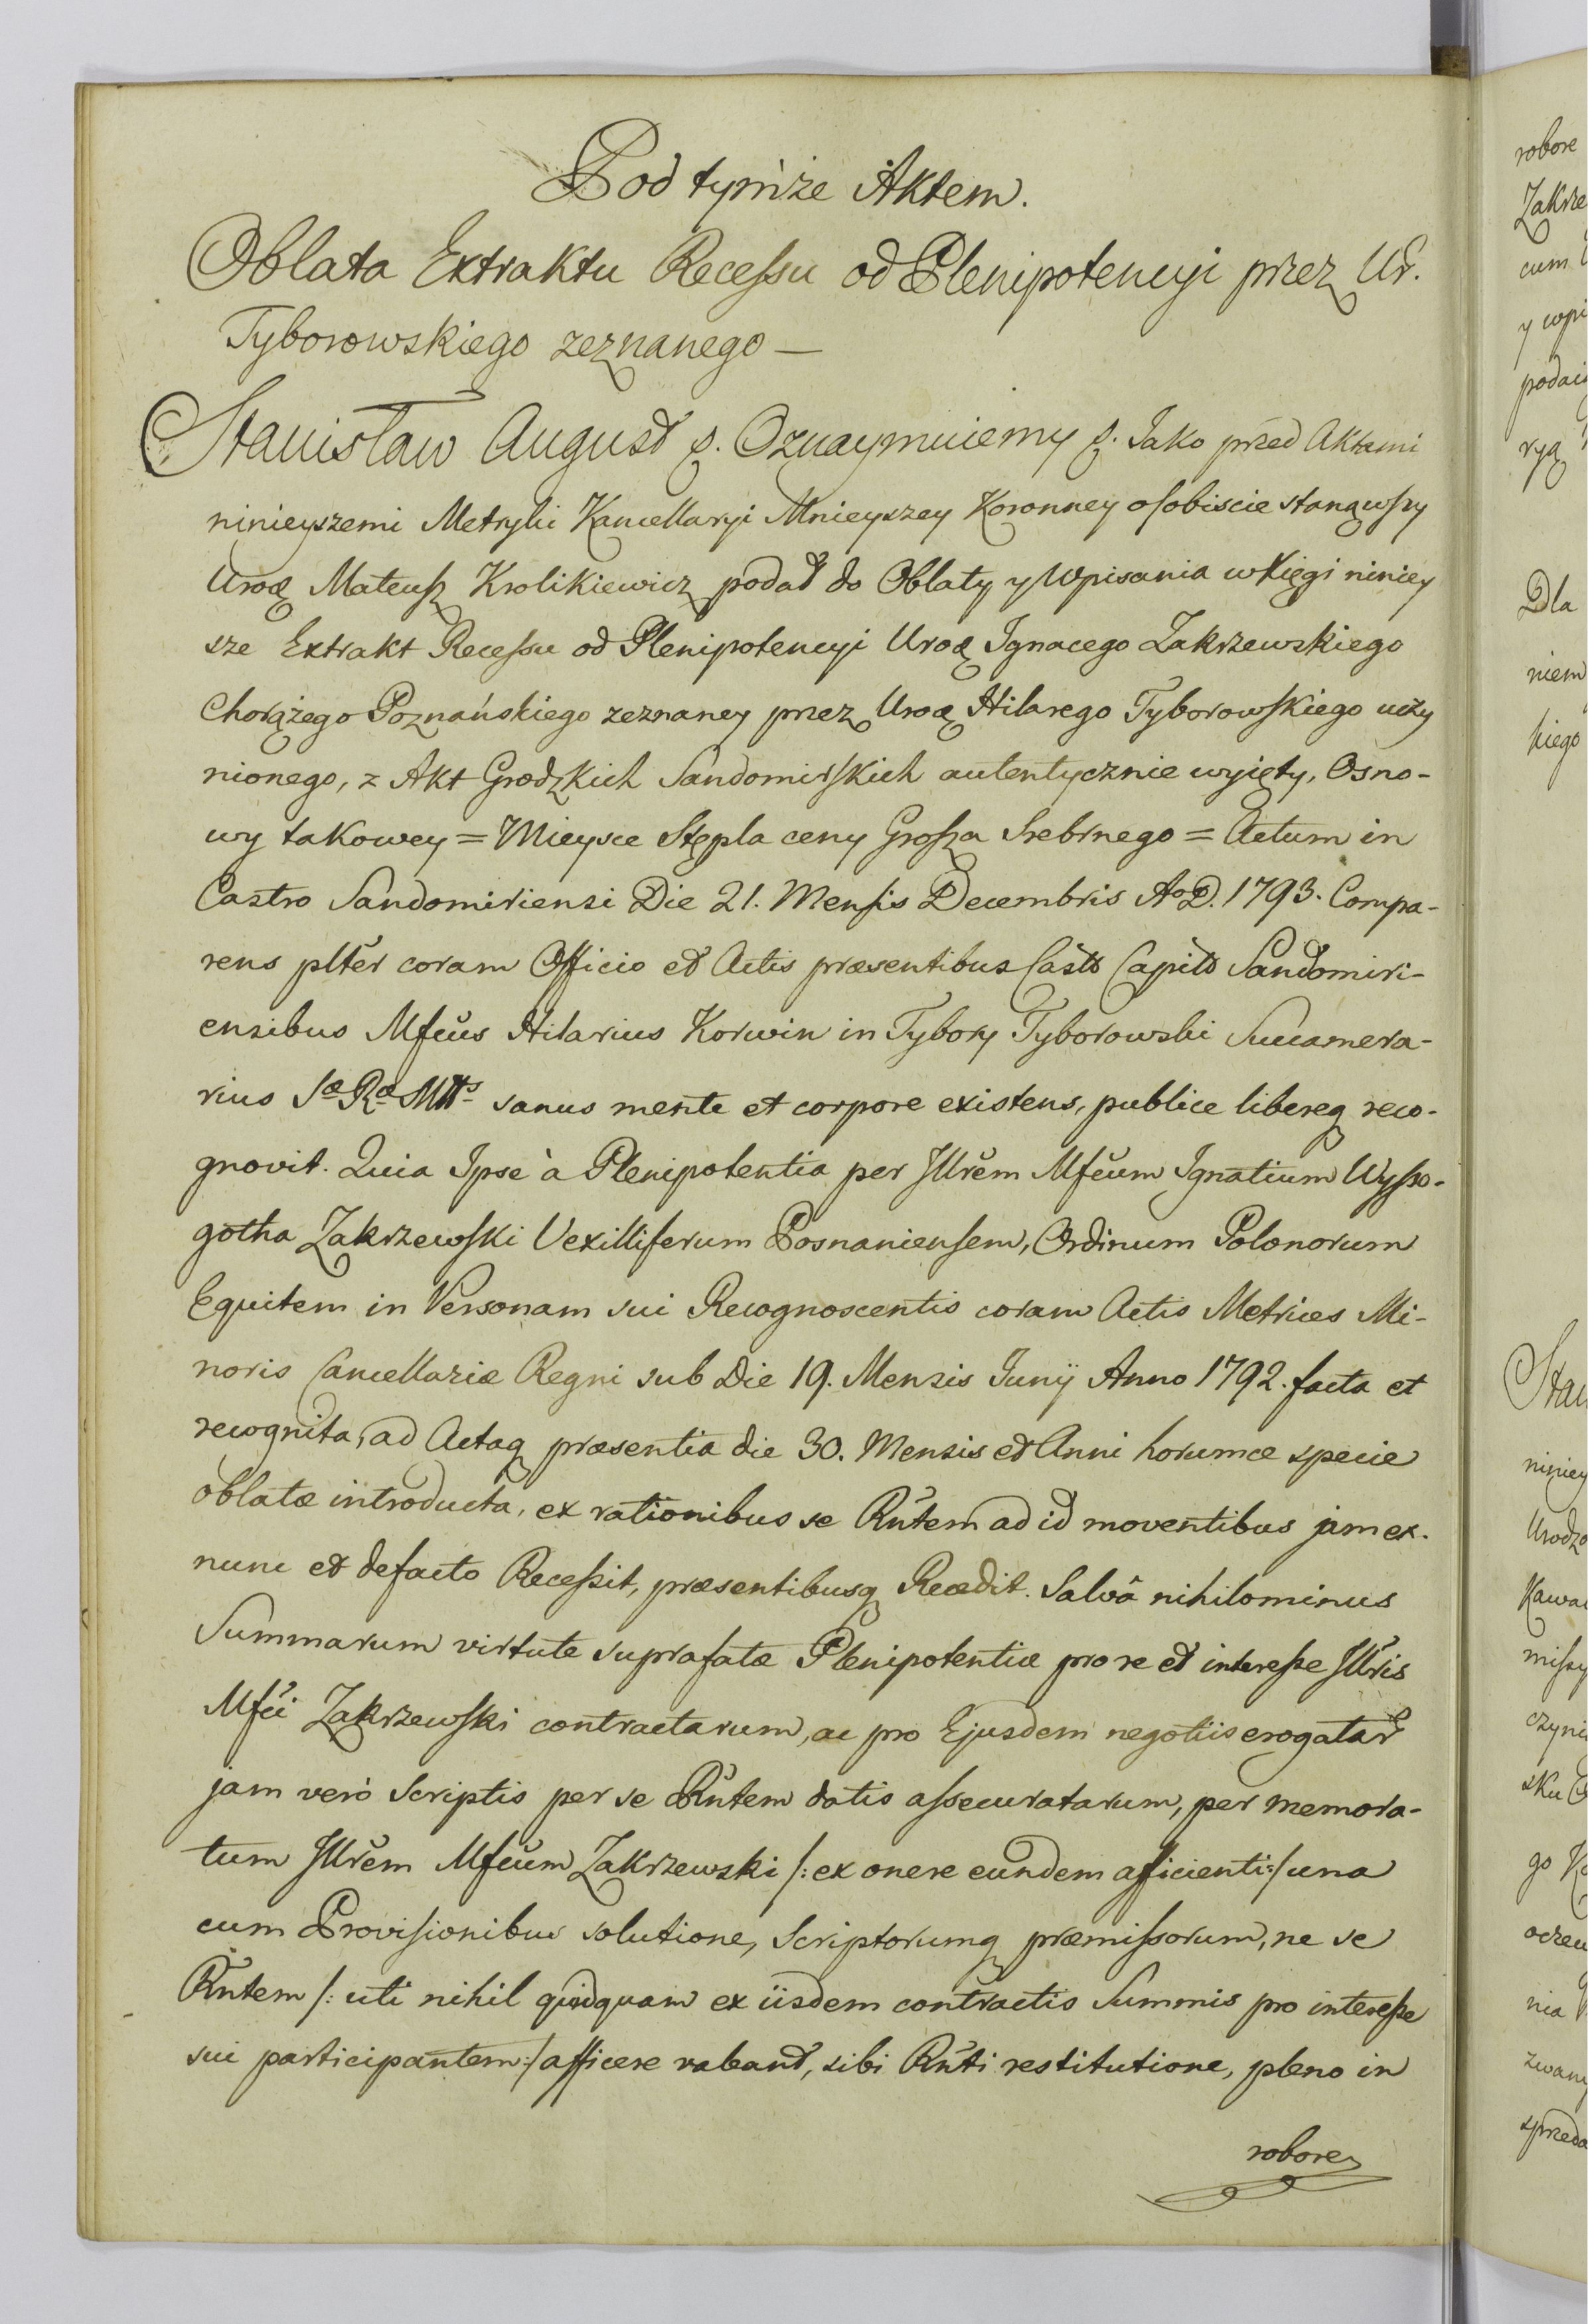 Pod tymże Aktem.
Oblata Extraktu Recessu od Plenipotencyi przez Ur.
Tyborowskiego zeznanego —
Stanisław August &. Oznaymuiemy &. Iako przed Aktami
ninieyszemi Metryki Kancellaryi Mnieyszey Koronney osobiscie stanąwszy
Urodz Mateusz Krolikiewicz podał do Oblaty y Wpisania w Xięgi niniey
sze Extrakt Recessu od Plenipotencyi Urodz Ignacego Zakrzewskiego
Chorążego Poznańskiego zeznaney przez Urodz Hilarego Tyborowskiego uczy
nionego, z Akt Grodzkich Sandomirskich autentycznie wyięty, Osno-
wy takowey = Mieysce Stępla ceny Grosza Srebrnego = Actum in
Castro Sandomiriensi Die 21. Mensis Decembris Ao D. 1793. Compa-
rens plter coram Officio et Actis præsentibus Castr Capit Sandomiri-
ensibus Mfcus Hilarius Korwin in Tybory Tyborowski Succamera-
rius Sæ Ræ Mttis sanus mente et corpore existens, publice libereq reco-
gnovit. Quia Ipse à Plenipotentia per Illrem Mfcum Ignatium Wysso-
gotha Zakrzewski Vexilliferum Posnaniensem, Ordinum Polonorum
Equitem in Personam sui Recognoscentis coram Actis Metrices Mi-
noris Cancellariæ Regni sub Die 19. Mensis Junij Anno 1792. facta et
recognita, ad Actaq præsentia die 30. Mensis et Anni horumce specie
oblatæ introducta, ex rationibus se Rntem ad id moventibus jam ex-
nunc et defacto Recessit, præsentibusq Recedit. Salvâ nihilominus
Summarum virtute suprafatæ Plenipotentiæ pro re et interesse Illris
Mfci Zakrzewski contractarum, ac pro Ejusdem negotiis erogatar
jam verò Scriptis per se Rntem datis assecuratarum, per memora-
tum Illrem Mfcum Zakrzewski /: ex onere eundem afficienti :/ una
cum Provisionibus solutione, Scriptorumq præmissorum, ne se
Rntem /: uti nihil quidquam ex iisdem contractis Summis pro interesse
sui participantem :/ afficere valeant, sibi Rnti restitutione, pleno in
robore
robore
Zakrze
cum
y wpi
podai
Dla
niem
kiego
niniey
Urodzo
Kawa
czyni
sku
go
oczew
nia
zwany
sprzeda